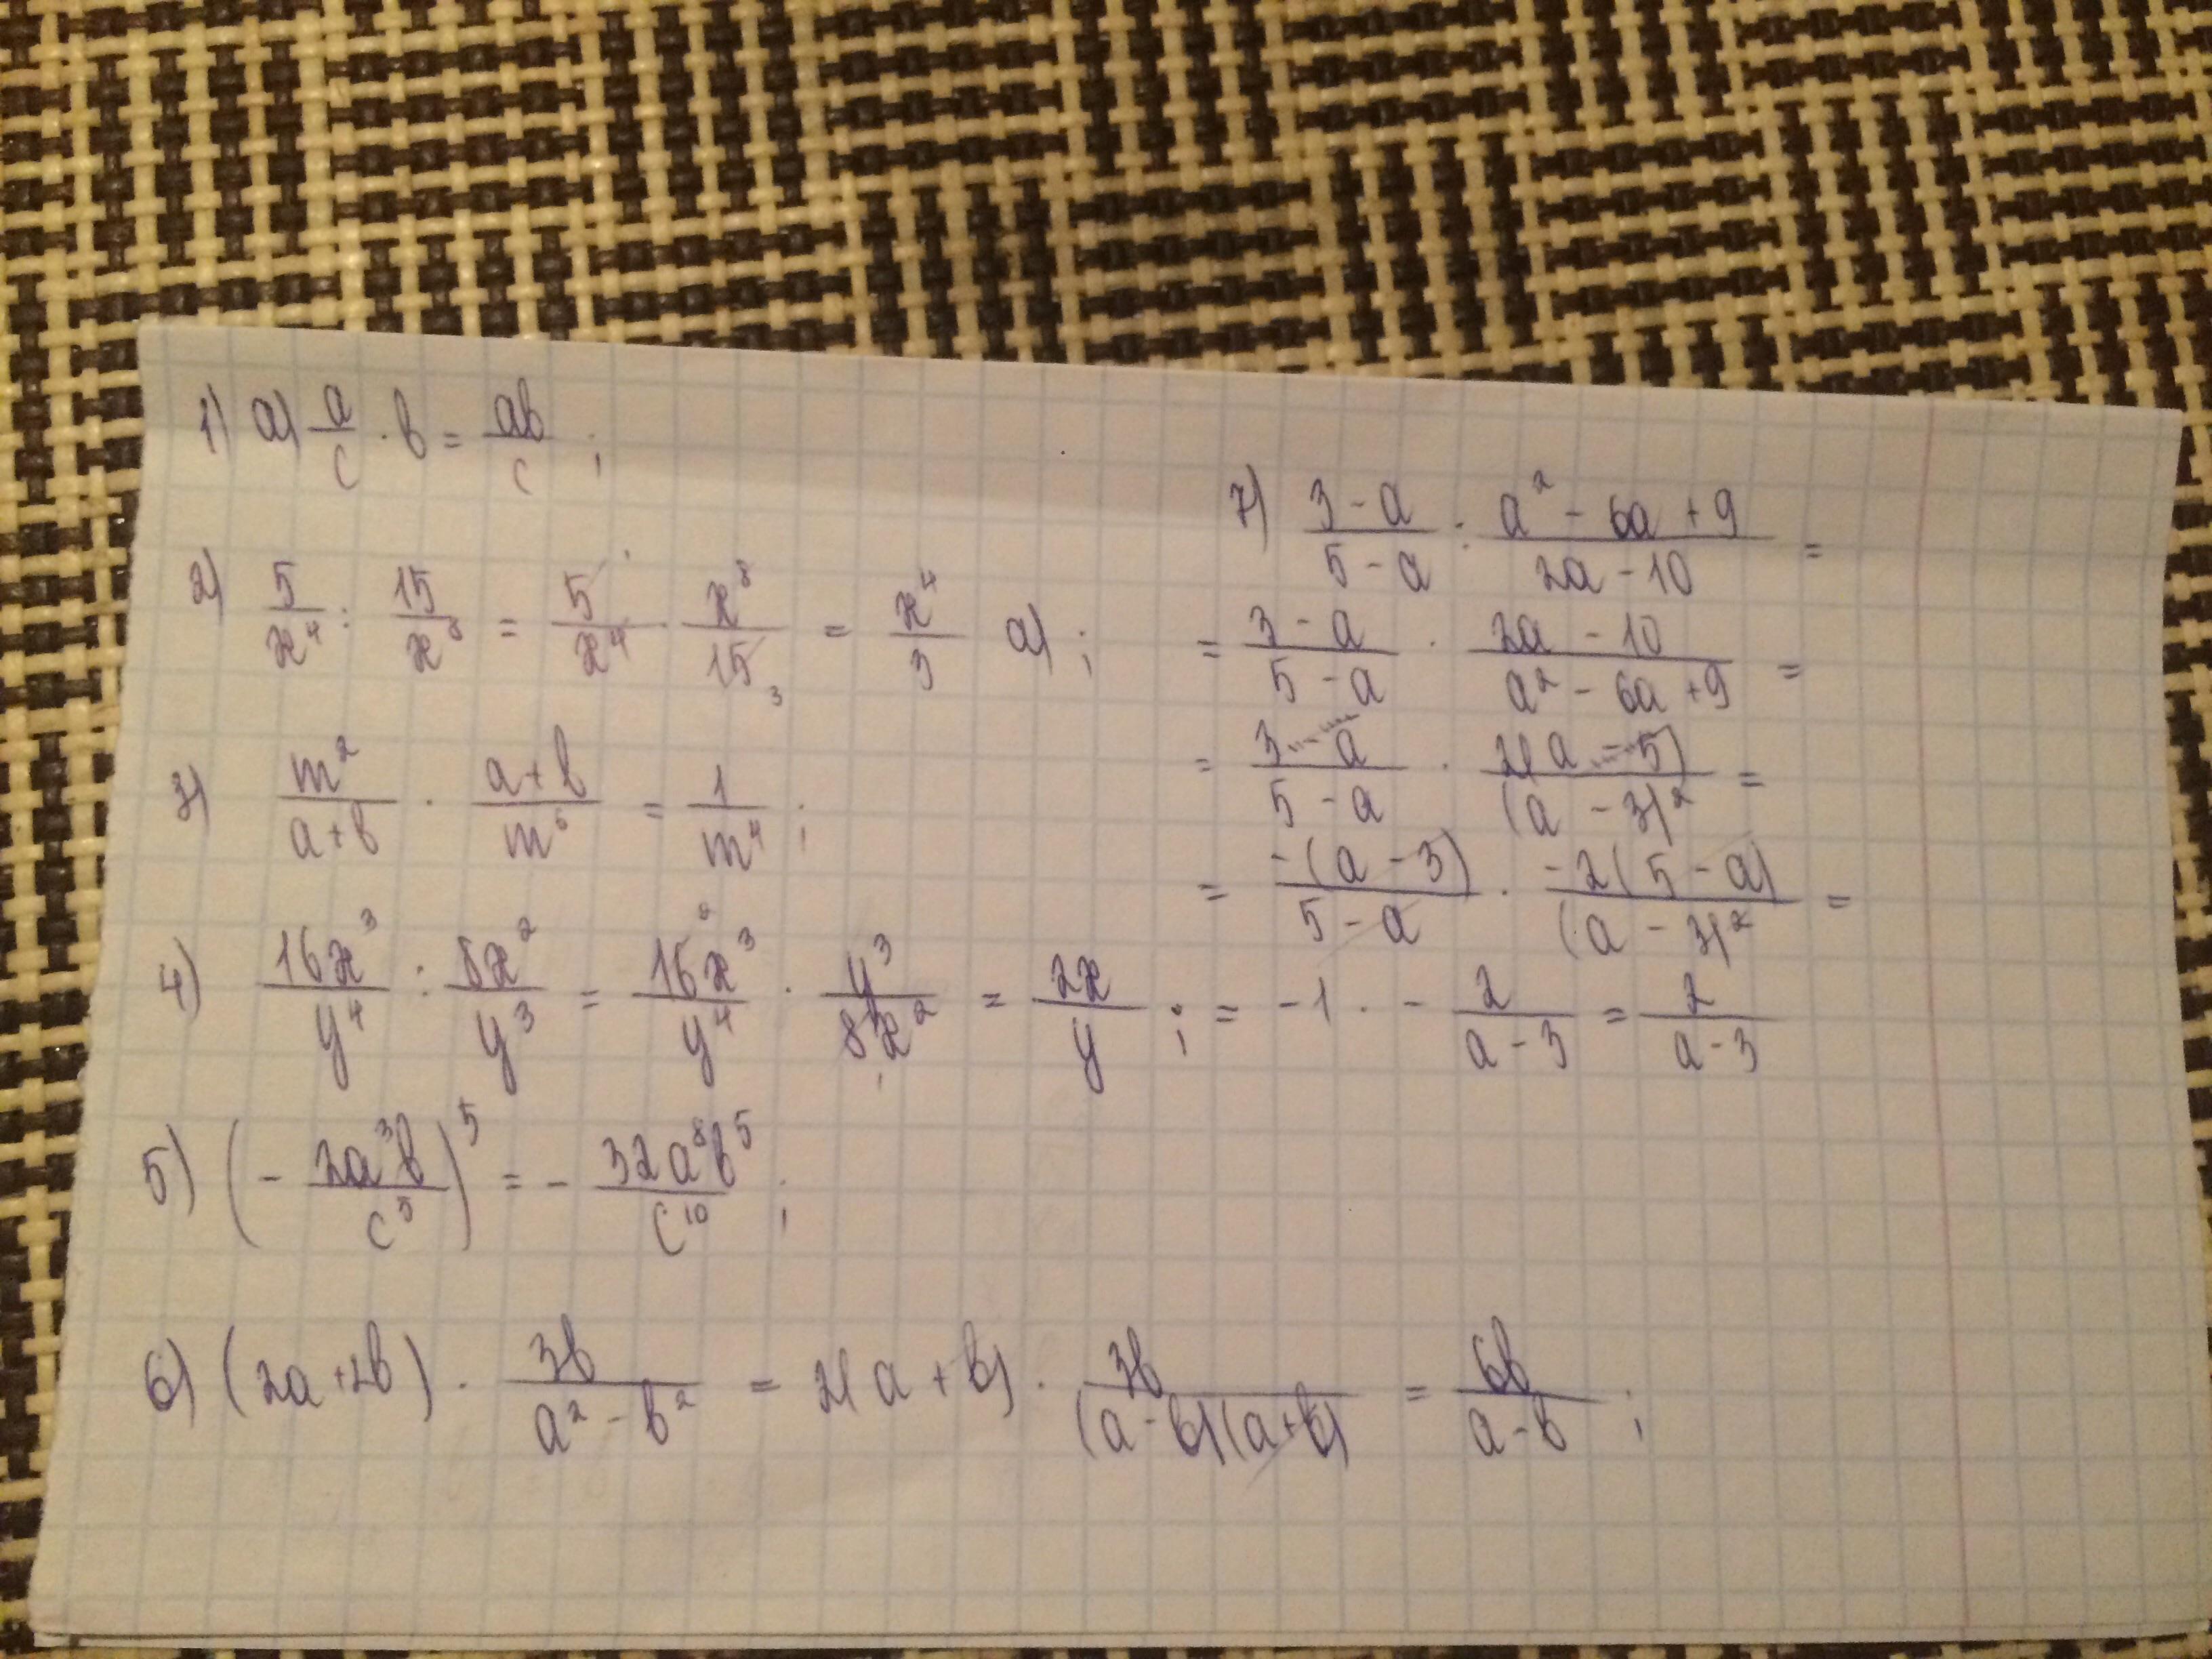 1) а) a/c · b = ab/c ;
2) 5/x⁴ : 15/x⁸ = 5/x⁴ · x⁸/15 3 = x⁴/3 а) ;
3) m²/(a+b) · (a+b)/m⁶ = 1/m⁴ ;
4) 16x³/y⁴ : 8x²/y³ = 16x³/y⁴ · y³/8x² = 2x/y ;
5) (- 2a³b/c⁵)⁵ = - 32a⁸b⁵/c¹⁰ ;
6) (2a+2b) · 3b/(a² - b²) = 2(a + b) · 3b/((a-b)(a+b)) = 6b/(a-b) ;
7) (3-a)/(5-a) : (a² - 6a + 9)/(2a-10) =
= (3-a)/(5-a) · (2a-10)/(a² - 6a + 9) =
= (3-a)/(5-a) · 2(a-5)/(a-3)² =
= -(a-3)/(5-a) · -2(5-a)/(a-3)² =
= -1 · - 2/(a-3) = 2/(a-3)